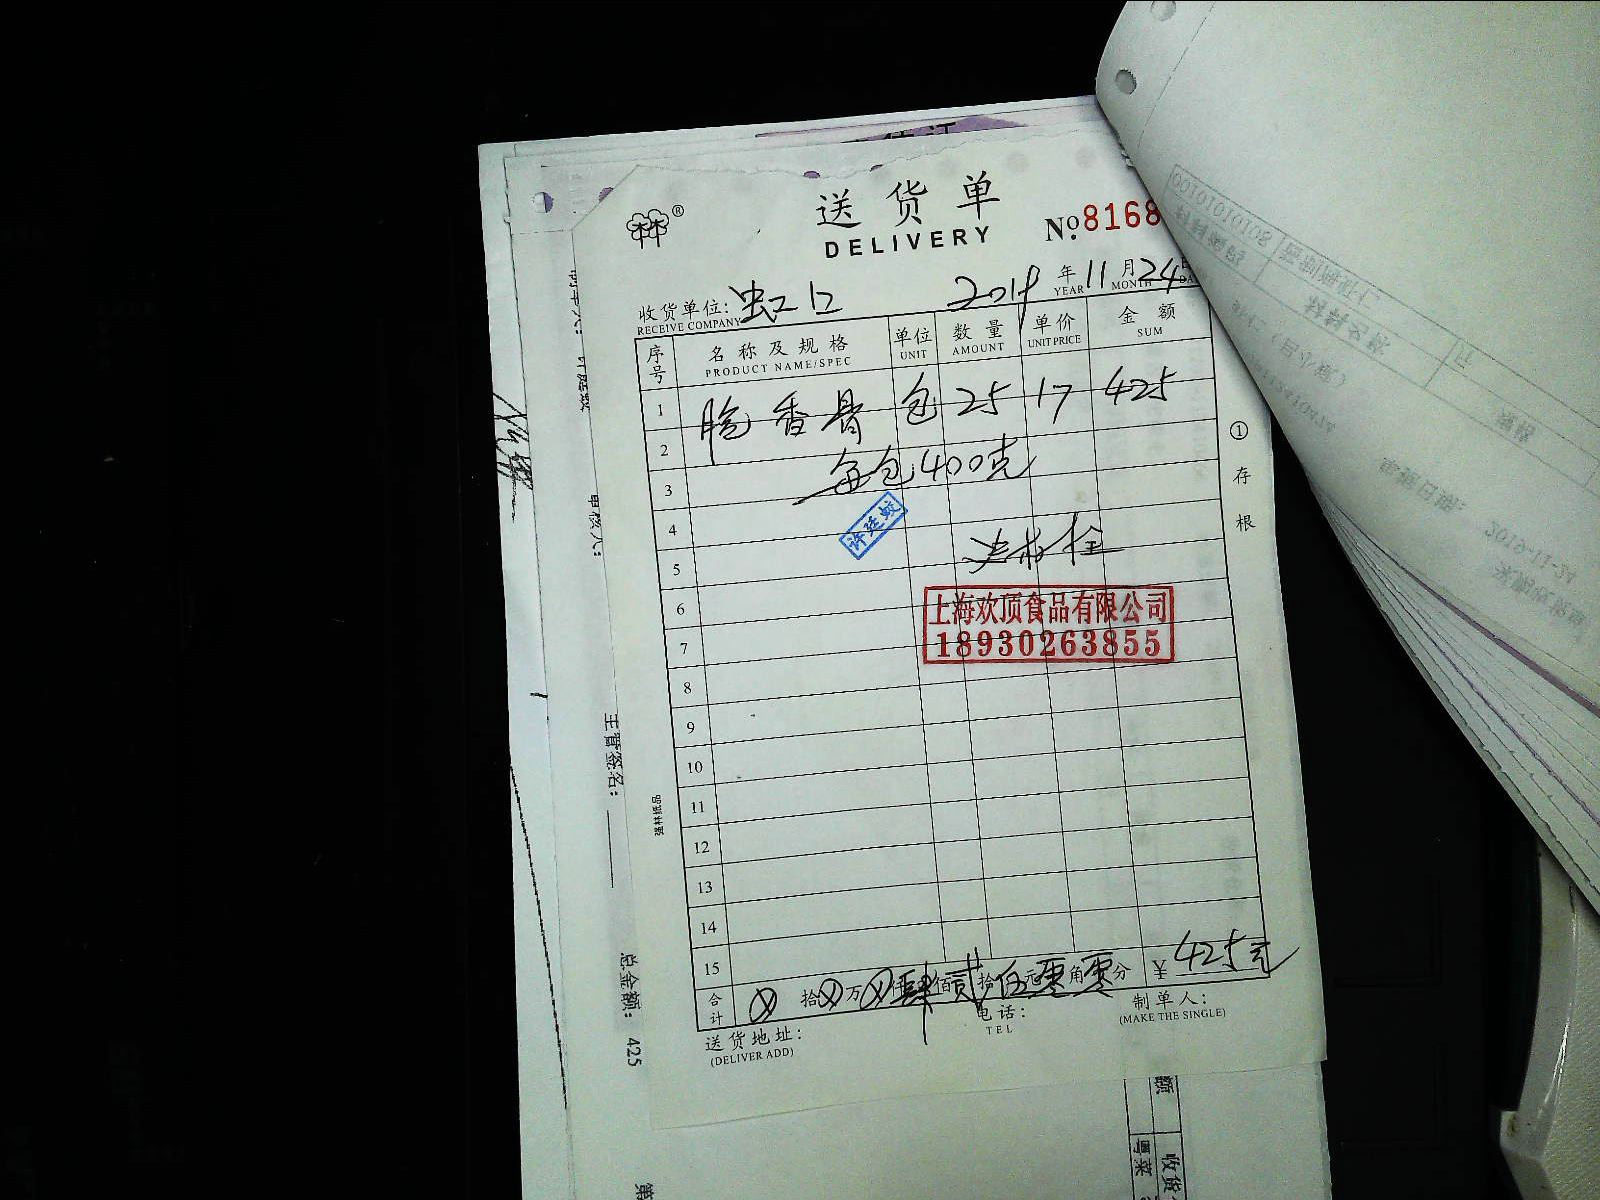 送货单
DELIVERY
®
№ 8168
收货单位: 虹口 2019年11月24日
RECEIVE COMPANY YEAR MONTH
序号 名称及规格 单位 数量 单价 金额
PRODUCT NAME/SPEC UNIT AMOUNT UNIT PRICE SUM
1 脆香骨 包 25 17 425
2
每包400克
3
4
许廷蛟
5
6
上海欢顶食品有限公司
7
18930263855
8
9
10
11
12
13
14
15
合计 ⊗拾⊗万⊗仟肆佰贰拾伍元零角零分 ¥ 425元
送货地址:
(DELIVER ADD)
电话:
TEL
制单人:
(MAKE THE SINGLE)
①存根
强林纸品
审核人:
主管签名:
总金额: 425
额
收货
粤菜
第
2019-11-2